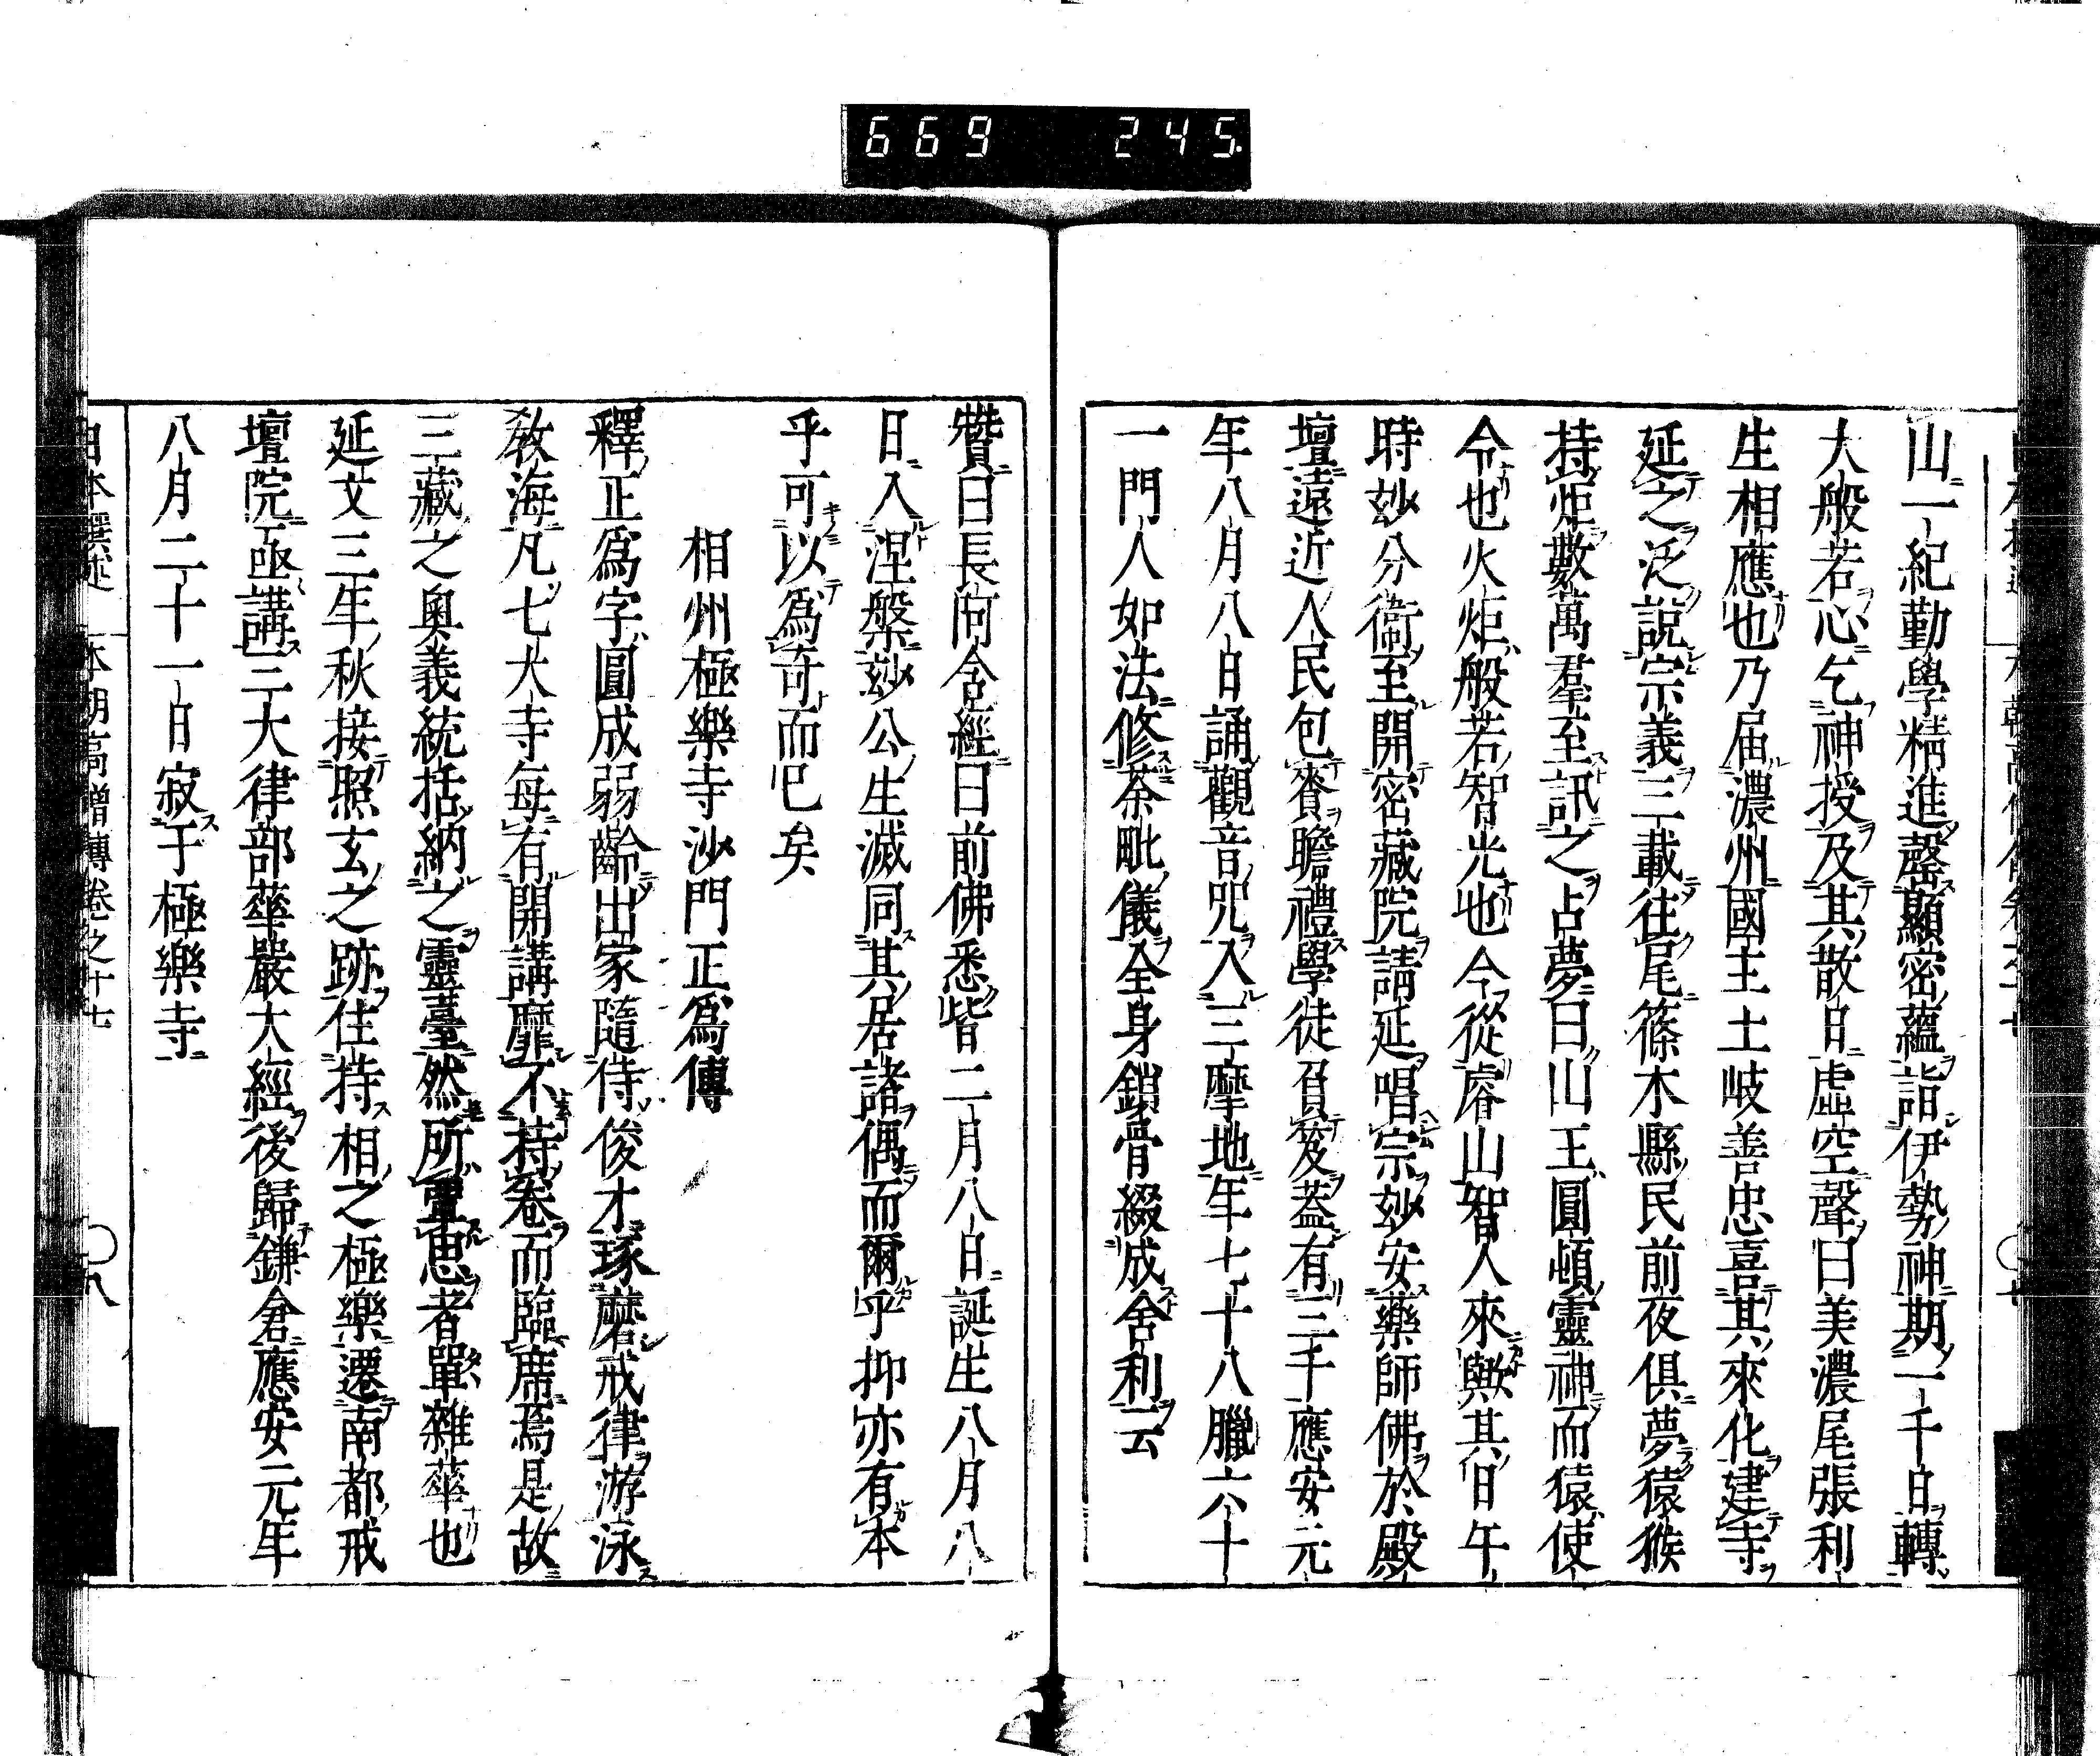 669 245
山一紀勤學精進罄顯密蘊詣伊勢神期一千日轉
大般若心乞神授及其散日虛空聲曰美濃尾張利
生相應也乃届濃州國主土岐善忠喜其來化建寺
延之泛說宗義三載往尾篠木縣民前夜俱夢猿猴
持炬數萬羣至訊之占夢曰山王圓頓靈神而猿使
令也火炬般若智光也今從睿山智人來歟其日午
時玅分衞至開密藏院請延唱宗玅安藥師佛於殿
壇遠近人民包賚瞻禮學徒負笈蓋有三千應安元
年八月八日誦觀音咒入三摩地年七十八臘六十
一門人如法修荼毗儀全身鎖骨綴成舍利云
贊曰長阿含經曰前佛悉皆二月八日誕生八月八
日入涅槃玅公生滅同其居諸偶而爾乎抑亦有本
乎可以爲奇而已矣
相州極樂寺沙門正爲傳
釋正爲字圓成弱齡出家隨侍俊才琢磨戒律游泳
教海凡七大寺每有開講靡不持卷而臨席焉是故
三藏之奧義統括納之靈臺然所覃思者單雜華也
延文三年秋接照玄之跡住持相之極樂遷南都戒
壇院亟講三大律部華嚴大經後歸鎌倉應安元年
八月二十一日寂于極樂寺
日本撰述 本朝高僧傳卷之十七 八